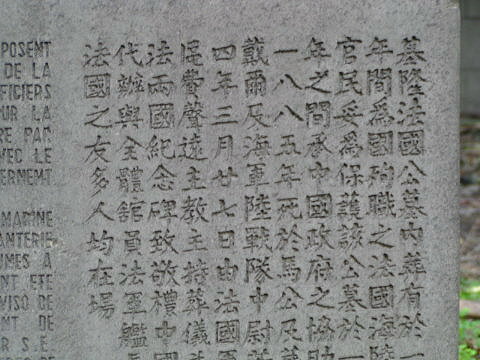 POSENT
DE LA
FICIERS
UR LA
RE PAR
VEC LE
ERNEMT
MARINE
ANTERIE
UMES A
NT ETE
VISO DE
NT DE
R S.E.
基隆法國公墓內葬有於
年間為國殉職之法國海陸
官民妥為保護該公墓於一
年之間承中國政府之協助
一八八五年死於馬公及葬
戴爾及海軍陸戰隊中尉
四年三月廿七日由法國軍
費聲遠主教主持葬儀
法兩國紀念碑致敬禮中國
代辦與全體舘員法軍艦
法國之友多人均在場